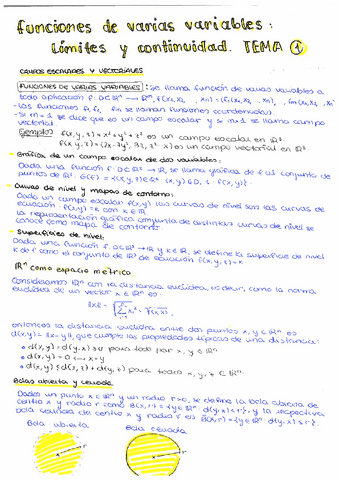 funciones de varias variables:
Límites y continuidad. TEMA 1
CAMPOS ESCALARES Y VECTORIALES
FUNCIONES DE VARIAS VARIABLES: se llama función de varias variables a
toda aplicación f: D⊂ℝⁿ → ℝᵐ, f(x₁, x₂, ... xₙ) = (f₁(x₁, x₂, ... xₙ), ... fm(x₁, x₂, ... xₙ)
- Las funciones f₁, f₂, ... fm se llaman funciones coordenadas.
- Si m = 1 se dice que es un campo escalar y si m>1 se llama campo
vectorial
Ejemplo: f(x, y, z) = x² + y² + z² es un campo escalar en ℝ³.
- Gráfica de un campo escalar de dos variables:
Dada una función f: D⊂ℝ² → ℝ, se llama gráfica de f al conjunto de
puntos de ℝ³
- Curvas de nivel y mapas de contorno:
Dado un campo escalar f(x, y) las curvas de nivel son las curvas de
ecuación f(x, y) = k con k ∈ ℝ.
la representación gráfica conjunta de distintas curvas de nivel se
conoce como mapa de contorno
- Superficies de nivel:
Dada una función f: D⊂ℝ³ → ℝ y k∈ℝ, se define la superficie de nivel
k de f como el conjunto de ℝ³ de ecuación f(x, y, z) = k
ℝⁿ como espacio métrico
Consideramos ℝⁿ con la distancia euclídea, es decir, como la norma
euclídea de un vector x ∈ ℝⁿ es:
entonces la distancia euclídea entre dos puntos x, y ∈ ℝⁿ es
d(x, y) = ‖x - y‖, que cumple las propiedades típicas de una distancia:
• d(x, y) = d(y, x) para todo par x, y ∈ ℝⁿ
• d(x, y) = 0 ⟷ x = y
• d(x, y) ≤ d(x, z) + d(z, y) para todos x, y, z ∈ ℝⁿ
Bolas abierta y cerrada
Dados un punto x ∈ ℝⁿ y un radio r>0, se define la bola abierta de
centro x y radio r como B(x, r) = {y ∈ ℝⁿ: d(y, x) < r}, y la respectiva
bola cerrada de centro x y radio r es B(x, r) = {y ∈ ℝⁿ: d(y, x) ≤ r}.
Bola abierta
Bola cerrada
r
r